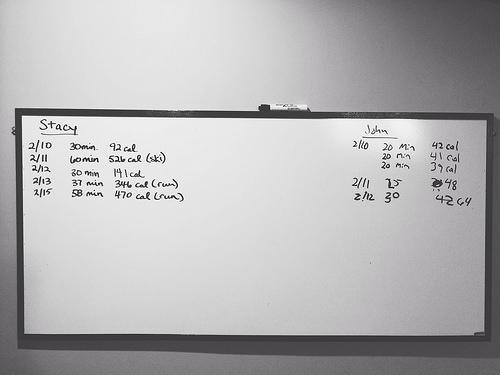 Stacy
2/10 30min 92 cal
2/11 60min 526 cal (ski)
2/12 30 min 141 cal
2/13 37 min 346 cal (run)
2/15 58 min 470 cal (run)
John
2/10 20 Min 42 cal
20 min 41 cal
20 min 39 cal
2/11 25 48
2/12 30 42 64